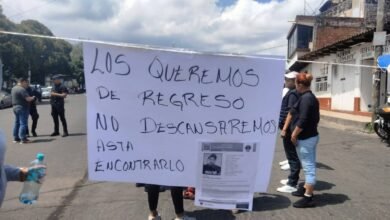 LOS QUEREMOS
DE REGRESO
NO DESCANSAREMOS
ASTA
ENCONTRARLO